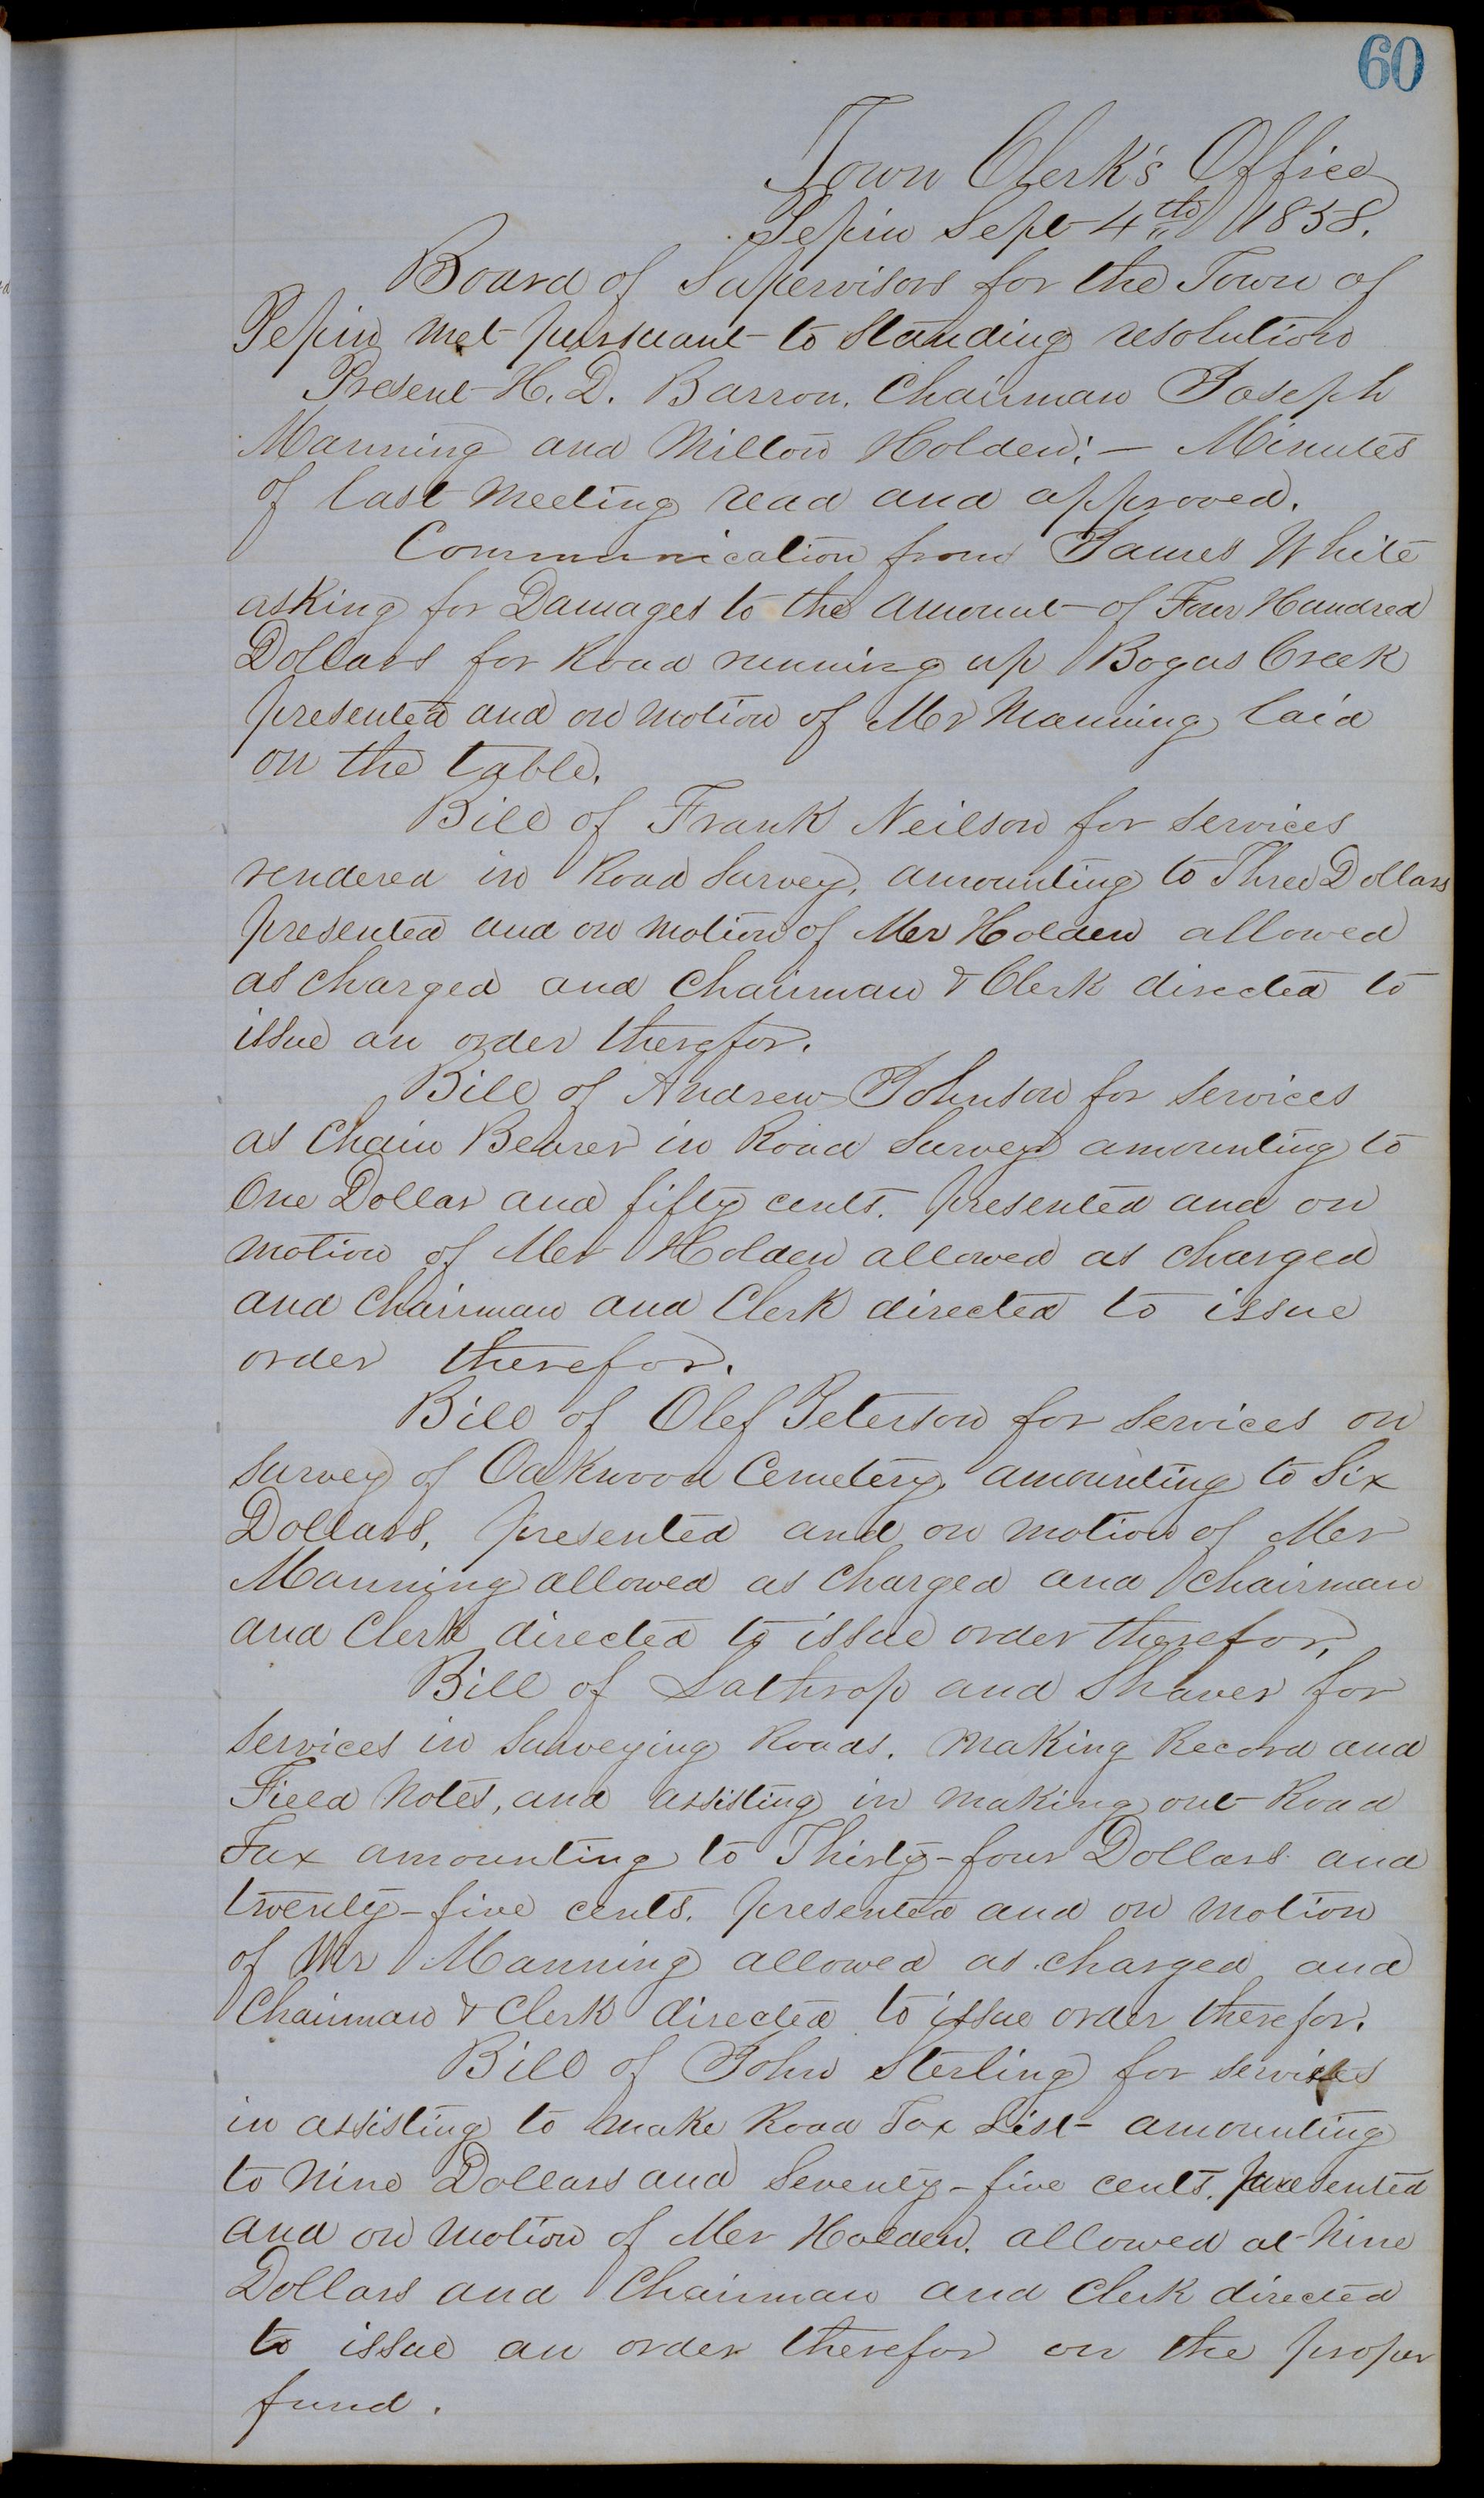 60
Town Clerk's Office
Pepin Sept 4th 1858.
Board of Supervisors for the Town of
Pepin met pursuant to standing resolution
Present H. D. Barron, Chairman Joseph
Manning and Milton Holden: — Minutes
of last meeting read and approved.
Communication from James White
asking for Damages to the amount of Four Hundred
Dollars for Road running up Bogus Creek
presented and on motion of Mr Manning laid
on the table.
Bill of Frank Neilson for services
rendered in Road Survey, amounting to Three Dollars
presented and on motion of Mr Holden allowed
as charged and Chairman & Clerk directed to
issue an order therefor.
Bill of Andrew Johnson for services
as Chain Bearer in Road Survey amounting to
One Dollar and fifty cents. presented and on
motion of Mr Holden allowed as charged
and Chairman and Clerk directed to issue
order therefor.
Bill of Olef Peterson for services on
survey of Oakwood Cemetery, amounting to Six
Dollars, presented and on motion of Mr
Manning allowed as charged and Chairman
and Clerk directed to issue order therefor,
Bill of Lathrop and Shaver for
services in Surveying Roads. making Record and
Field Notes, and assisting in making out Road
Tax amounting to Thirty-four Dollars and
twenty-five cents. presented and on motion
of Mr Manning allowed as charged and
Chairman & Clerk directed to issue order therefor.
Bill of John Sterling for services
in assisting to make Road Tax List amounting
to Nine Dollars and Seventy-five cents. presented
and on motion of Mr Holden. allowed at Nine
Dollars and Chairman and Clerk directed
to issue an order therefor on the proper
fund.